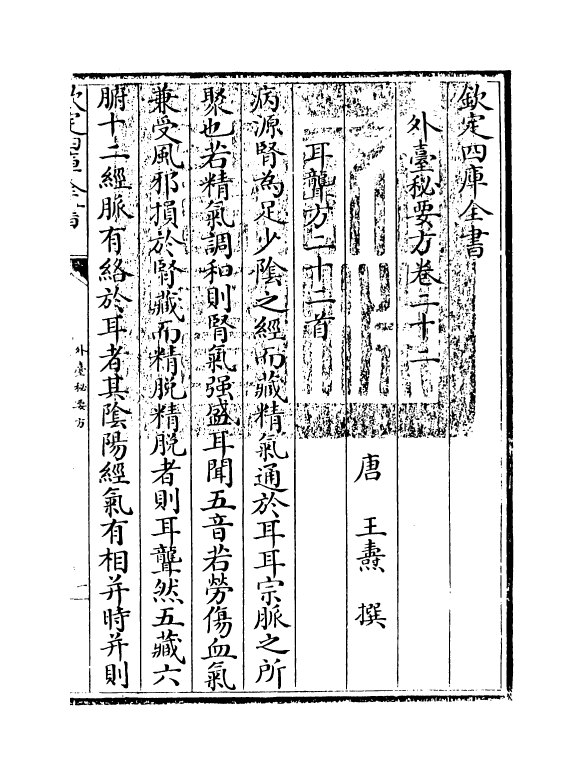 欽定四庫全書
外臺秘要方卷二十二
唐 王燾 撰
耳聾方二十二首
病源腎為足少陰之經而藏精氣通於耳耳宗脈之所
聚也若精氣調和則腎氣强盛耳聞五音若勞傷血氣
兼受風邪損於腎藏而精脱精脱者則耳聾然五藏六
腑十二經脈有絡於耳者其陰陽經氣有相并時并則
欽定四庫全書
外臺秘要方